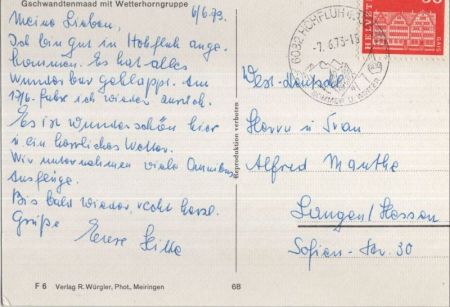 Gschwandtenmaad mit Wetterhorngruppe
6/6.73.
Meine Lieben,
Ich bin gut in Hohfluh ange-
kommen. Es hat alles
wunderbar geklappt. Am
17/6. fahre ich wieder zurück.
Es ist wunderschön hier
u ein herrliches Wetter.
Wir unternehmen viele Omnibus
Ausflüge.
Bis bald wieder, recht herzl.
Grüße
Eure
F 6 Verlag R. Würgler, Phot. Meiringen
6B
Reproduktion verboten
6083 HOHFLUH
-7.6.73-
HELVETIA
West-Deutschl.
Herrn u Frau
Alfred Manthe
Langen/Hessen
Sofien-Str. 30